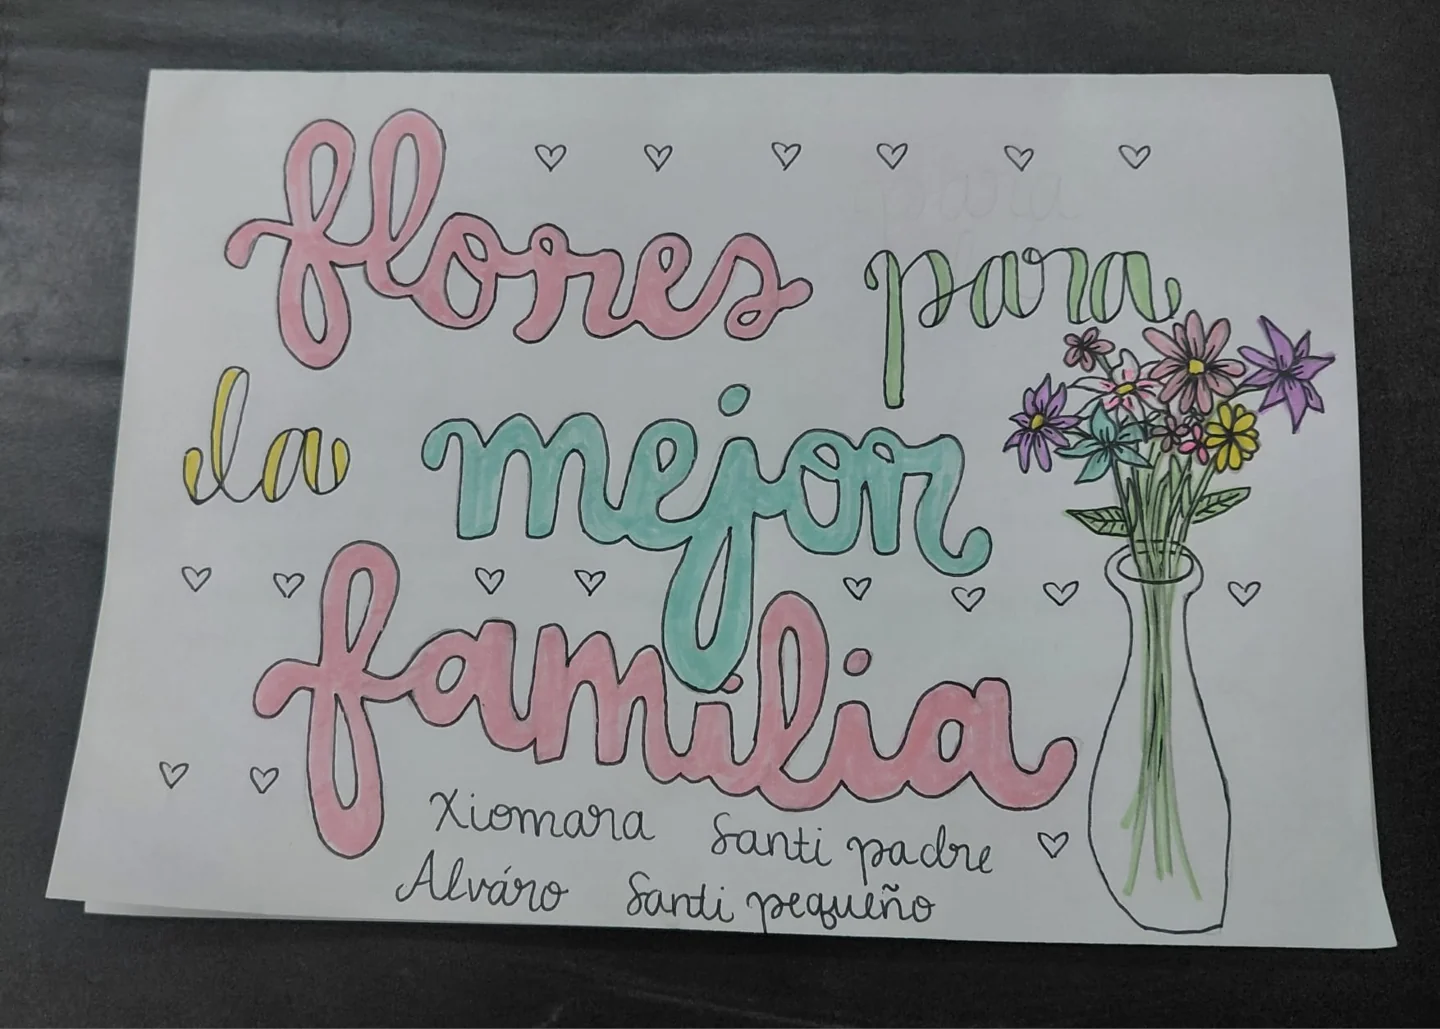 flores para
la mejor
familia
Xiomara Santi padre
Alváro Santi pequeño